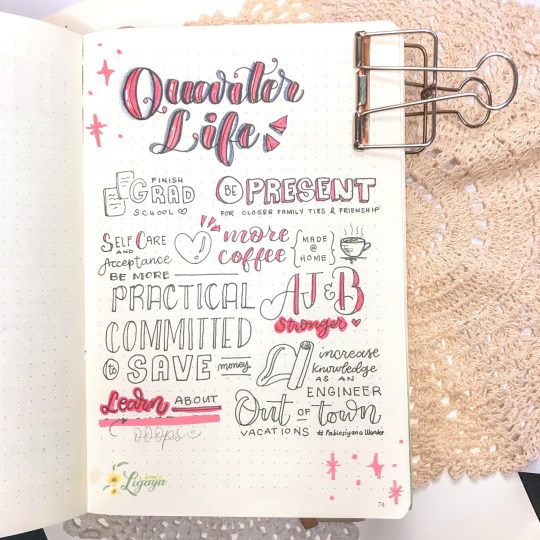 Quarter
Life
FINISH
GRAD
SCHOOL
BE PRESENT
FOR CLOSER FAMILY TIES & FRIENSHIP
SELF CARE
AND
Acceptance
more
coffee
MADE
@
HOME
BE MORE
PRACTICAL
COMMITTED
to SAVE money
AJ & B
Stronger
increase
knowledge
AS AN
ENGINEER
Learn ABOUT
ooops
Out OF town
VACATIONS
Ligaya
74